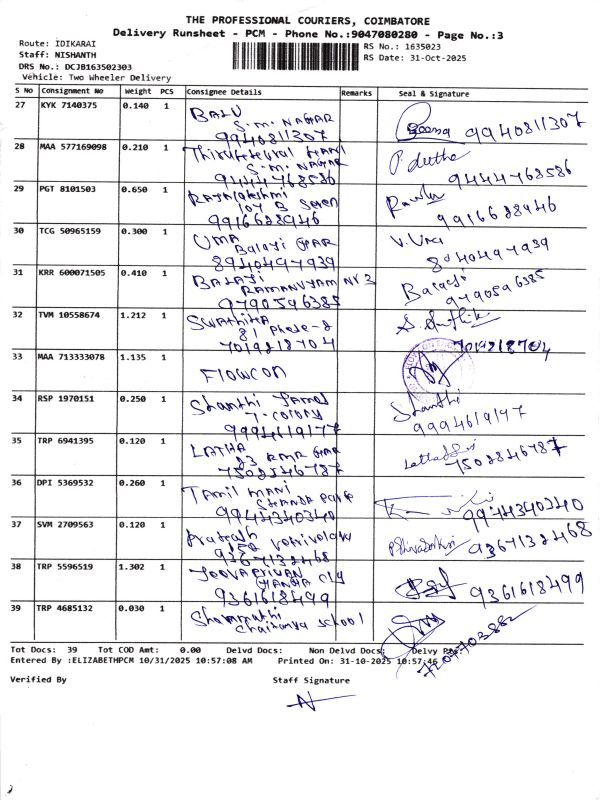 THE PROFESSIONAL COURIERS, COIMBATORE
Delivery Runsheet - PCM - Phone No.:9047080280 - Page No.:3
Route: IDIKARAI
RS No.: 1635023
Staff: NISHANTH
RS Date: 31-Oct-2025
DRS No.: DCJB163502303
Vehicle: Two Wheeler Delivery
S No Consignment No Weight PCS Consignee Details Remarks Seal & Signature
27 KYK 7140375 0.140 1 BALU
S.M. NAGAR
9940811307 9940811307
28 MAA 577169098 0.210 1
S.M. NAGAR
9444768586 9444768586
29 PGT 8101503 0.650 1 RAJALakshmi
107 B Seven
9916628946 9916628946
30 TCG 50965159 0.300 1 UMA V. Uma
Balaji
8940497939 8940497939
31 KRR 600071505 0.410 1 BALAJI Balaji
RAMANUYAM NY 3
9790596385 9790596385
32 TVM 10558674 1.212 1 SWATHIKA
81 Phase-2
7019218704 7019218704
33 MAA 713333078 1.135 1 FLOWCON
34 RSP 1970151 0.250 1 Shanthi Shanthi
7-colony
9994619177 9994619177
35 TRP 6941395 0.120 1 LATHA
83 RMR
7502846787 7502846787
36 DPI 5369532 0.260 1 Tamil mani
9944340340 9944340340
37 SVM 2709563 0.120 1 Prakash
9367132468 9367132468
38 TRP 5596519 1.302 1
9361618499 9361618499
39 TRP 4685132 0.030 1
Chaitanya School
Tot Docs: 39 Tot COD Amt: 0.00 Delvd Docs: Non Delvd Docs: Delvy
Entered By :ELIZABETHPCM 10/31/2025 10:57:08 AM Printed On: 31-10-2025 10:57:46
Verified By Staff Signature